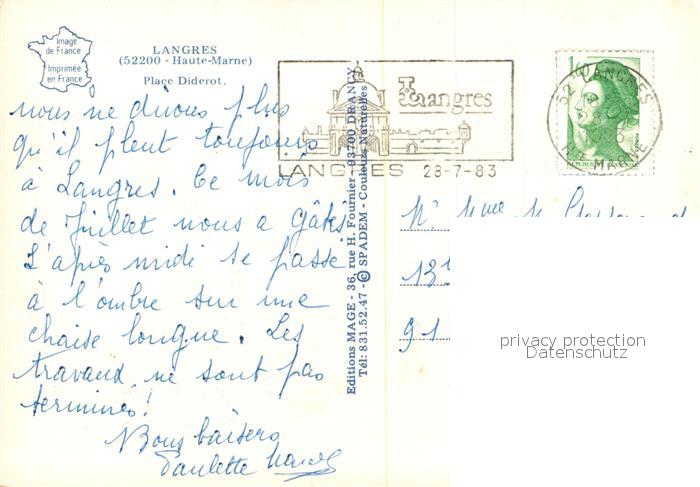 Image
de France
Imprimée
en France
LANGRES
(52200 - Haute-Marne)
Place Diderot.
nous ne dirons plus
qu'il pleut toujours
à Langres. Ce mois
de Juillet nous a gâtés
L'après midi se passe
à l'ombre sur une
chaise longue. Les
travaux ne sont pas
terminés!
Bons baisers
Paulette
Editions MAGE - 36, rue H. Fournier - 93700 DRANCY
Tél: 831.52.47 - © SPADEM - Couleurs Naturelles
Langres
LANGRES 28-7-83
1,60
52 LANGRES
HTE MARNE
REPUBLIQUE FRANÇAISE
Mr Mme
91
privacy protection
Datenschutz